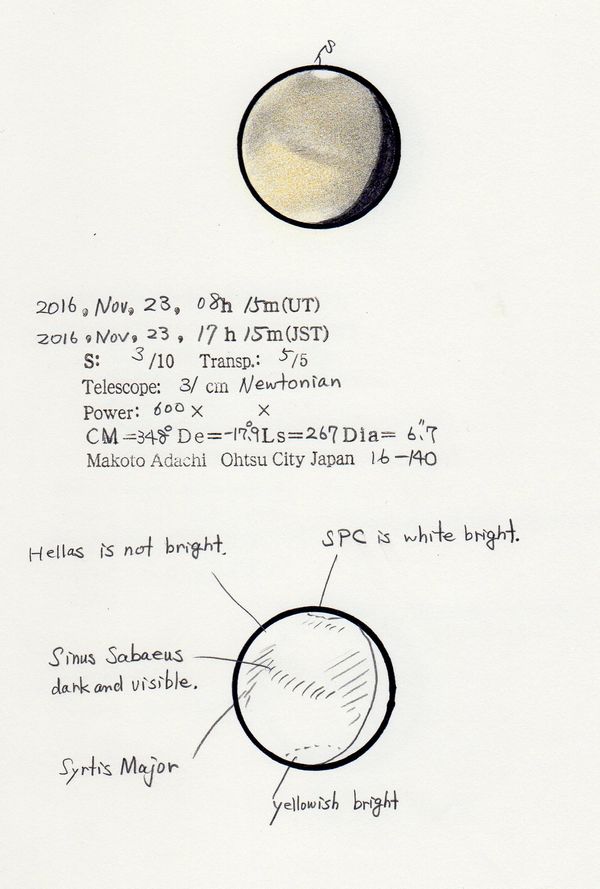 S
2016, Nov, 23, 08h 15m(UT)
2016, Nov, 23, 17h 15m(JST)
S: 3/10 Transp.: 5/5
Telescope: 31 cm Newtonian
Power: 600× ×
CM=348° De=-17.9° Ls=267 Dia= 6.″7
Makoto Adachi Ohtsu City Japan 16-140
SPC is white bright.
Hellas is not bright.
Sinus Sabaeus
dark and visible.
Syrtis Major
yellowish bright